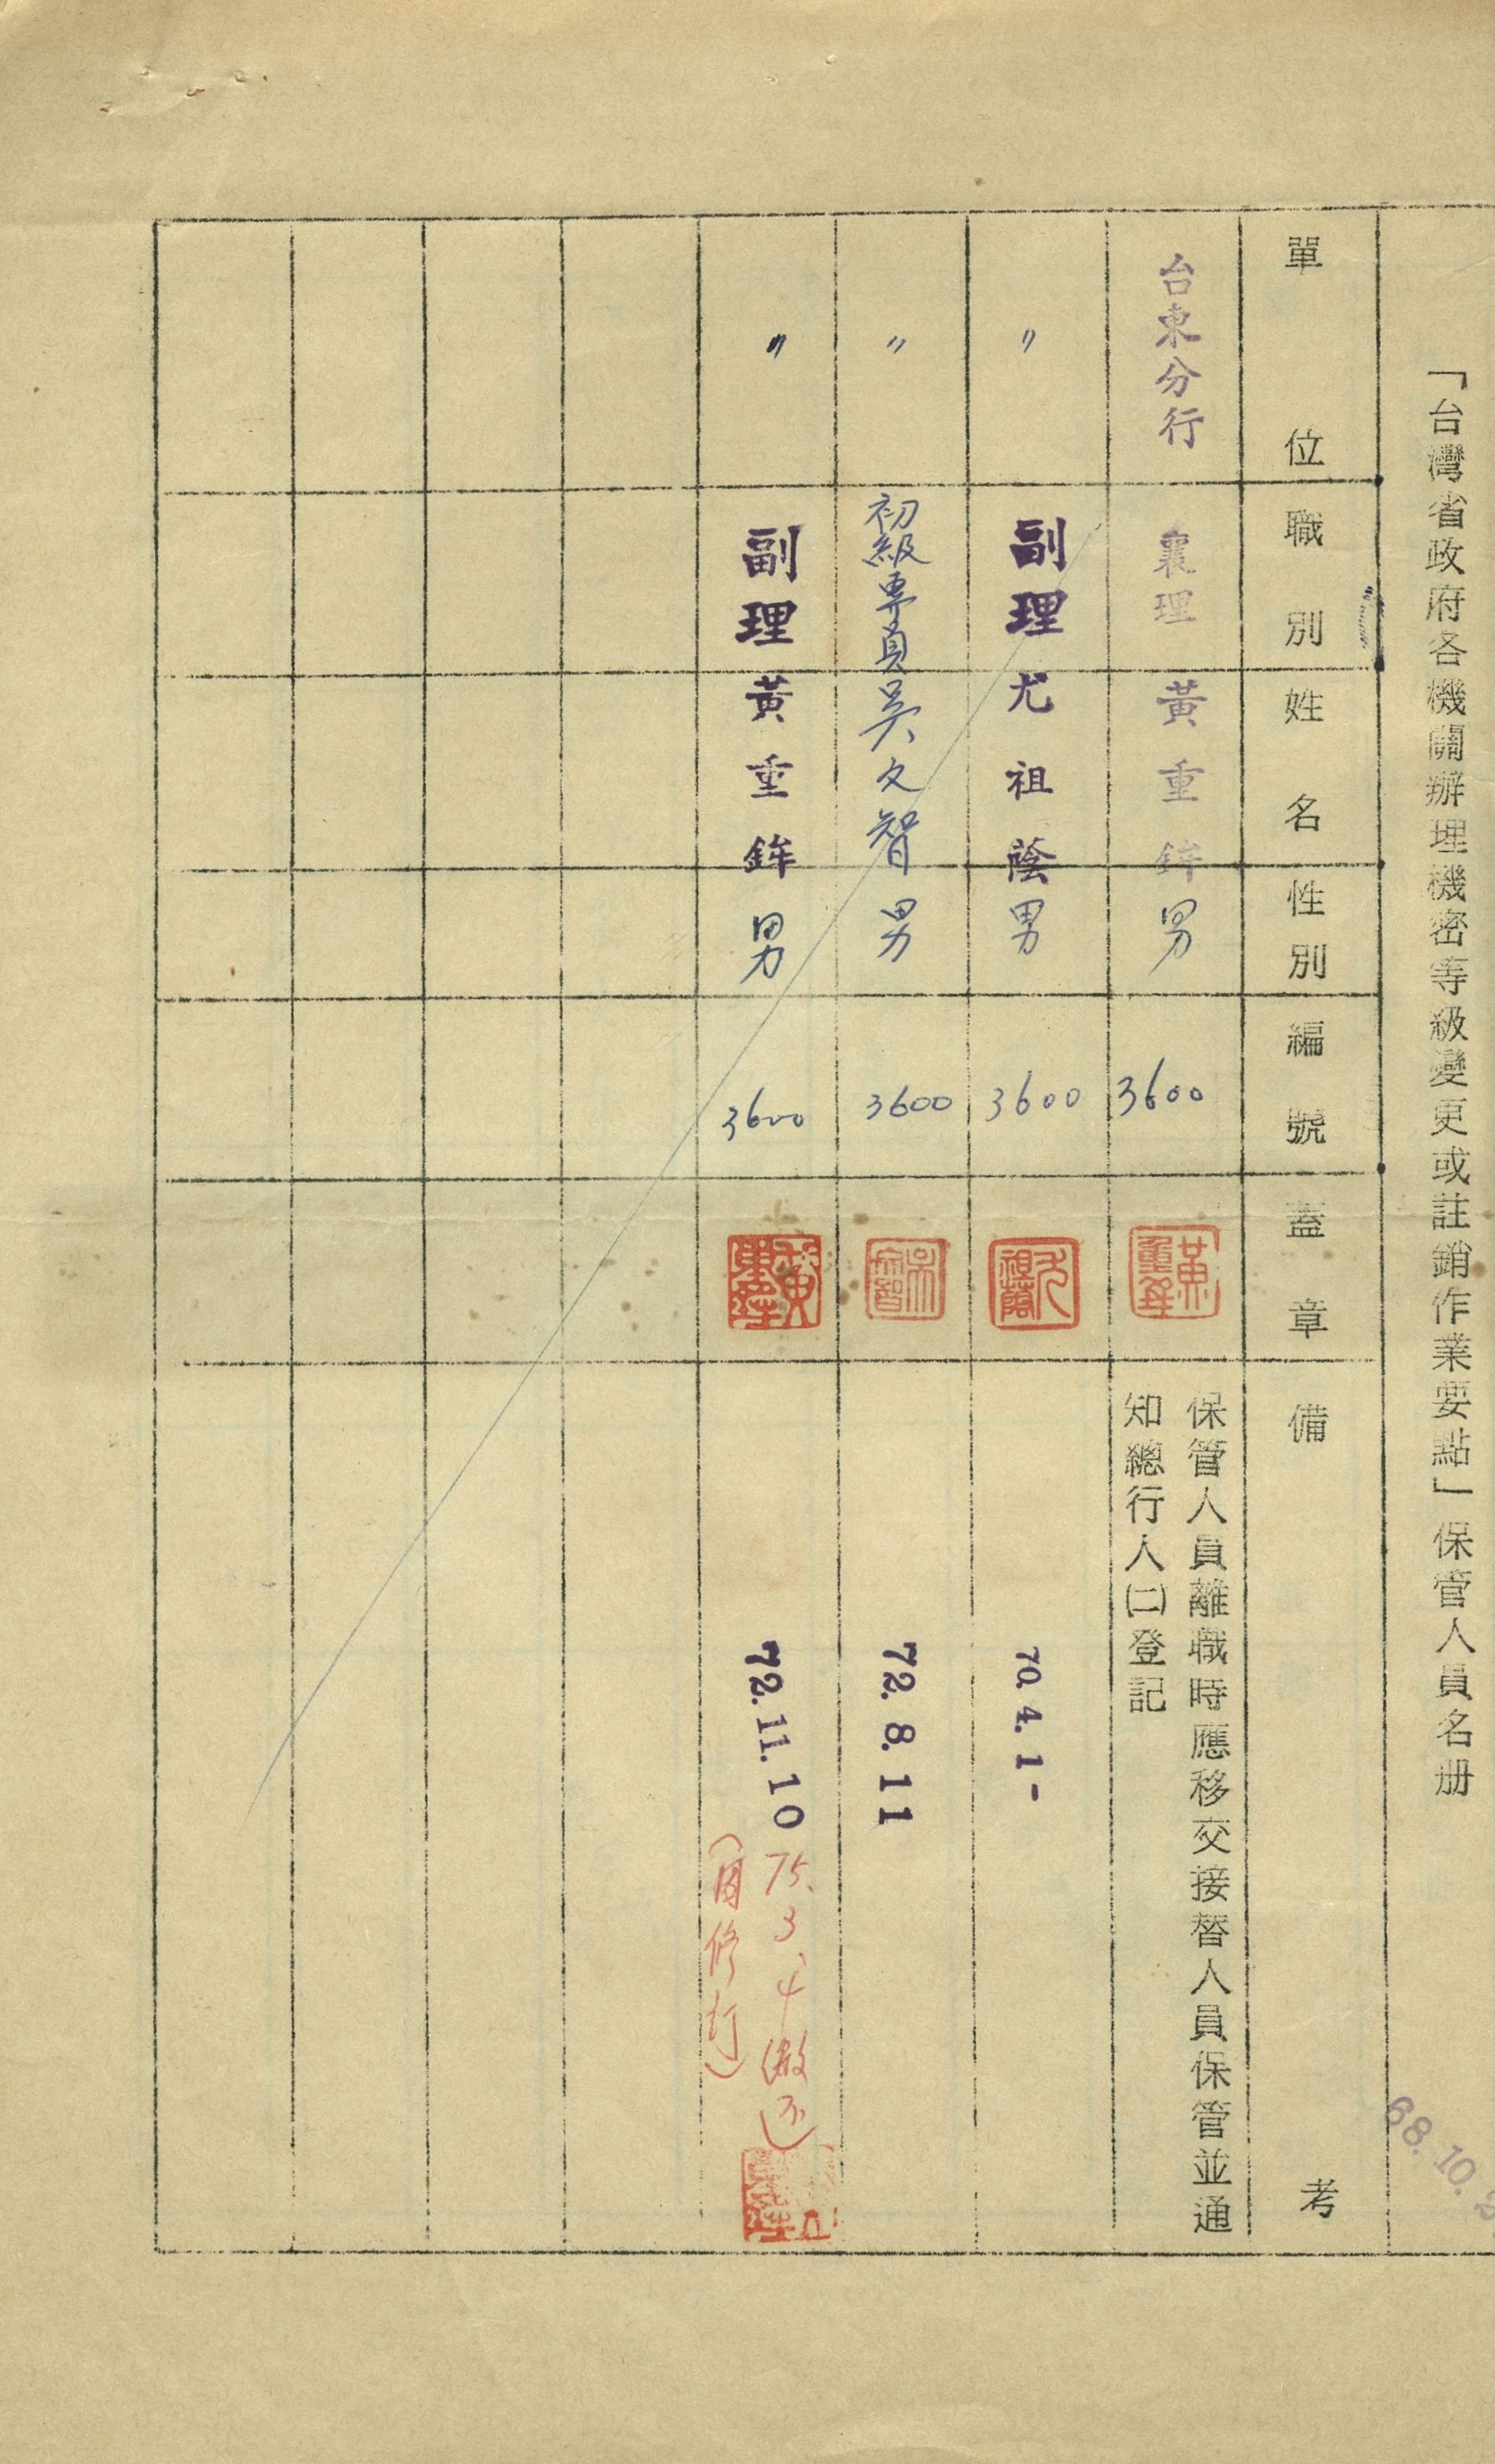 「台灣省政府各機關辦理機密等級變更或註銷作業要點」保管人員名册
68.10.2
單位 職別 姓名 性別 編號 蓋章 備考
台東分行 襄理 黃重鉾 男 3600 黃重鉾 保管人員離職時應移交接替人員保管並通
知總行人㈡登記
〃 副理 尤祖蔭 男 3600 尤祖蔭 70.4.1-
〃 初級專員 吳文智 男 3600 吳文智 72.8.11
〃 副理 黃重鉾 男 3600 黃重鉾 72.11.10 75.3.4繳還
(因修訂)